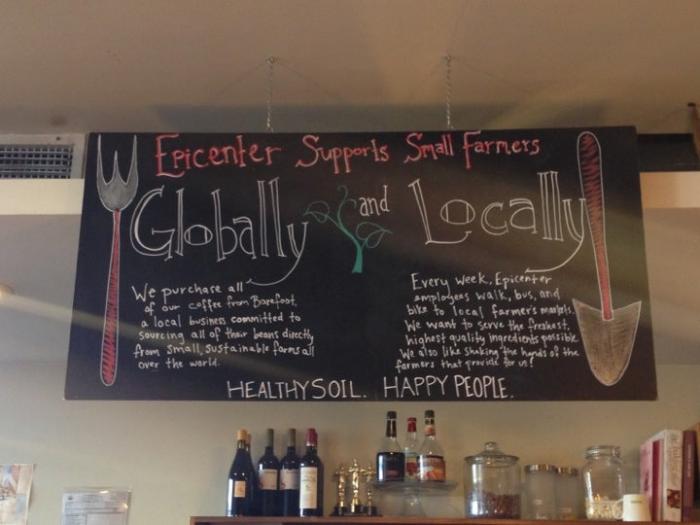 Epicenter Supports Small Farmers
Globally and Locally
We purchase all
of our coffee from Barefoot,
a local business committed to
sourcing all of their beans directly
from small, sustainable farms all
over the world.
Every week, Epicenter
employees walk, bus, and
bike to local farmer's markets.
We want to serve the freshest,
highest quality ingredients possible
We also like shaking the hands of the
farmers that provide for us!
HEALTHY SOIL. HAPPY PEOPLE.